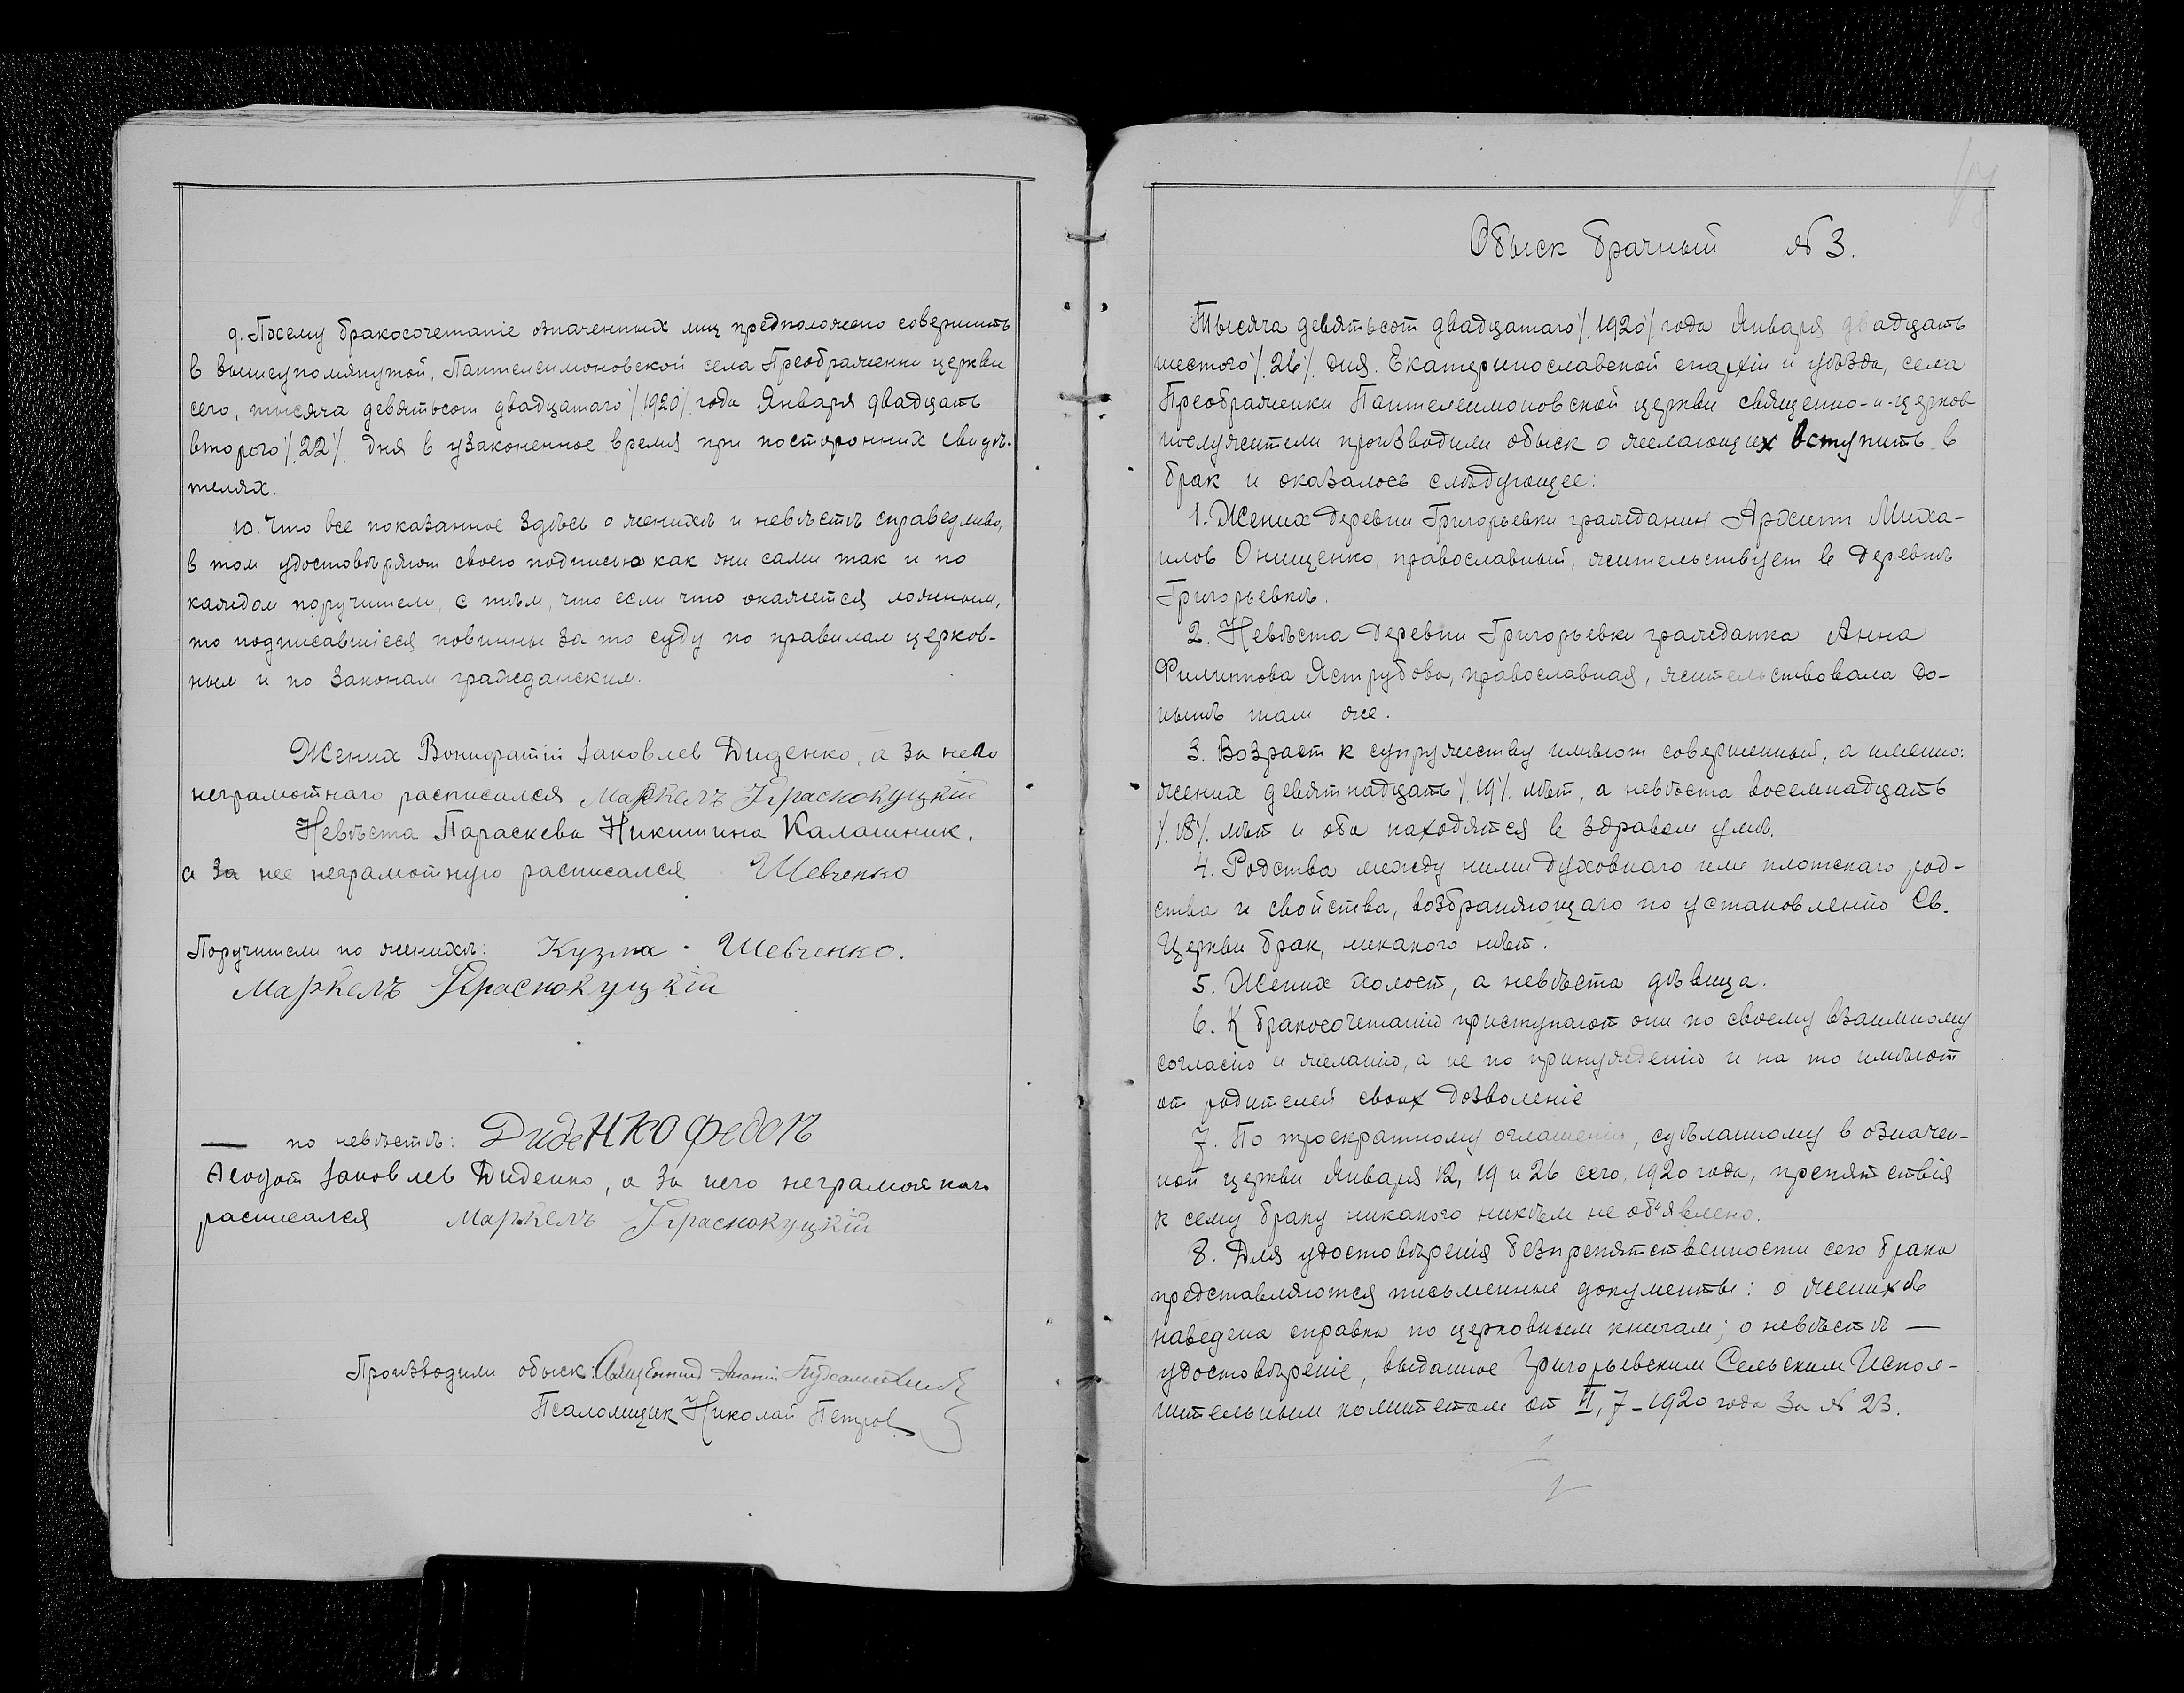 9. Посему бракосочетаніе означенных лиц предположено совершить
в вышеупомянутой, Пантелеимоновской села Преображенки церкви
сего, тысяча девятьсот двадцатаго /.1920/. года Января двадцать
второго /.22/. дня в узаконенное время при посторонних свидѣ-
телях.
10. Что все показанное здѣсь о женихѣ и невѣстѣ справедливо,
в том удостовѣряют своею подписью как они сами так и по
каждом поручители, с тѣм, что если что окажется ложным,
то подписавшіеся повинны за то суду по правилам церков-
ным и по законам гражданским.
Жених Вонифатій Іаковлев Диденко, а за него
неграмотнаго расписался Маркелъ Краснокуцкій
Невѣста Параскева Никитина Калашник,
а за нее неграмотную расписался Шевченко
Поручители по женихѣ: Кузма Шевченко.
Маркелъ Краснокуцкій
— по невѣстѣ: Диденко Федот
Іаковлев Диденко, а за него неграмотнаго
расписался Маркелъ Краснокуцкій
Производили обыск: Священник
Псаломщик Николай Петров
Обыск брачный № 3.
Тысяча девятьсот двадцатаго /.1920/. года Января двадцать
шестого /.26/. дня. Екатеринославской епархіи и уѣзда, села
Преображенки Пантелеимоновской церкви священно-и-церков-
нослужители производили обыск о желающих вступить в
брак и оказалось слѣдующее:
1. Жених деревни Григорьевки гражданин Архип Миха-
илов Онищенко, православный, жительствует в деревнѣ
Григорьевкѣ.
2. Невѣста деревни Григорьевки гражданка Анна
Филиппова Яструбова, православная, жительствовала до-
нынѣ там же.
3. Возраст к супружеству имѣют совершенный, а именно:
жених девятнадцать /.19/. лѣт, а невѣста восемнадцать
/.18/. лѣт и оба находятся в здравом умѣ.
4. Родства между ними духовнаго или плотскаго род-
ства и свойства, возбраняющаго по установленію Св.
Церкви брак, никакого нѣт.
5. Жених холост, а невѣста дѣвица.
6. К бракосочетанію приступают они по своему взаимному
согласію и желанію, а не по принужденію и на то имѣют
от родителей своих дозволеніе
7. По троекратному оглашенію, сдѣланному в означен-
ной церкви Января 12, 19 и 26 сего, 1920 года, препятствія
к сему браку никакого никѣм не объявлено.
8. Для удостовѣренія безпрепятственности сего брака
представляются письменные документы: о женихѣ
наведена справка по церковным книгам; о невѣстѣ —
удостовѣреніе, выданное Григорьевским Сельским Испол-
нительным комитетом от II, 7-1920 года за № 23.